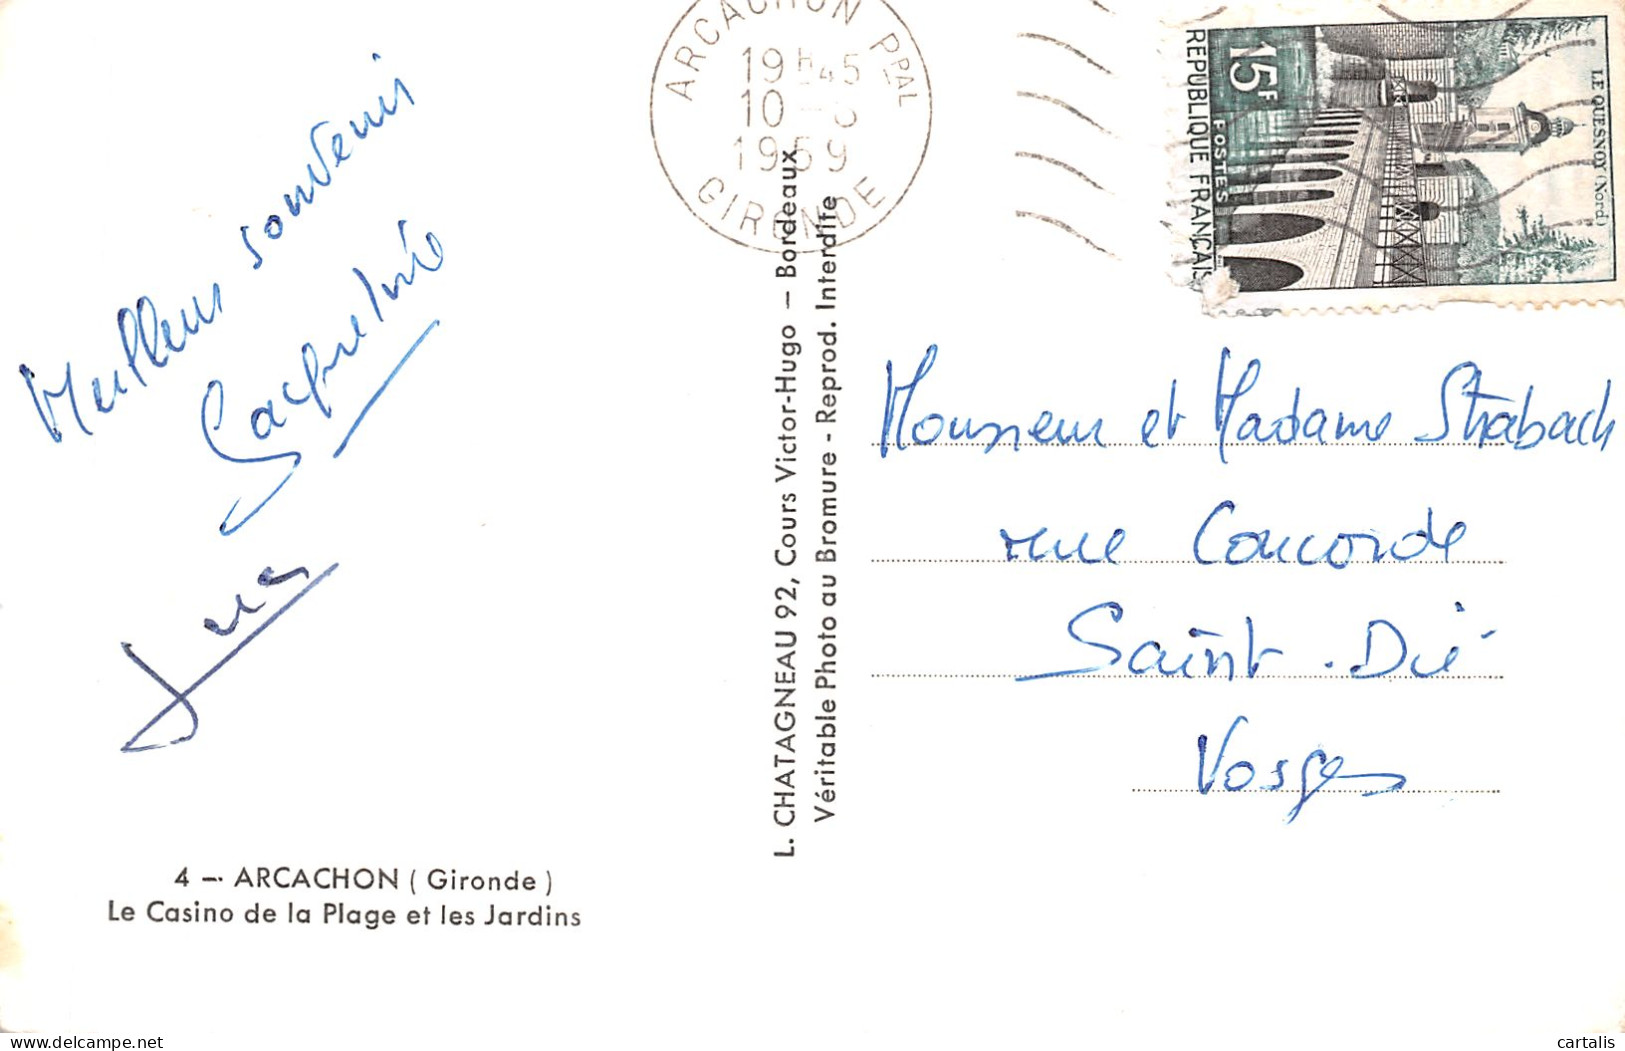 Meilleur souvenir
Jacqueline
ARCACHON PPAL
19H45
10
1959
GIRONDE
15F
POSTES
REPUBLIQUE FRANÇAISE
LE QUESNOY (Nord)
L. CHATAGNEAU 92, Cours Victor-Hugo — Bordeaux
Véritable Photo au Bromure - Reprod. Interdite
Monsieur et Madame Strabach
rue Concorde
Saint-Dié
Vosges
4 — ARCACHON ( Gironde )
Le Casino de la Plage et les Jardins
cartalis